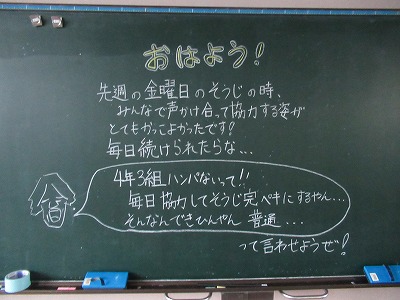 おはよう!
先週の金曜日のそうじの時、
みんなで声かけ合って協力する姿が
とてもかっこよかったです?
毎日続けられたらな...
4年3組ハンパないって!!
毎日協力してそうじ完ペキにするやん...
そんなんできひんやん普通...
って言わせようぜ!